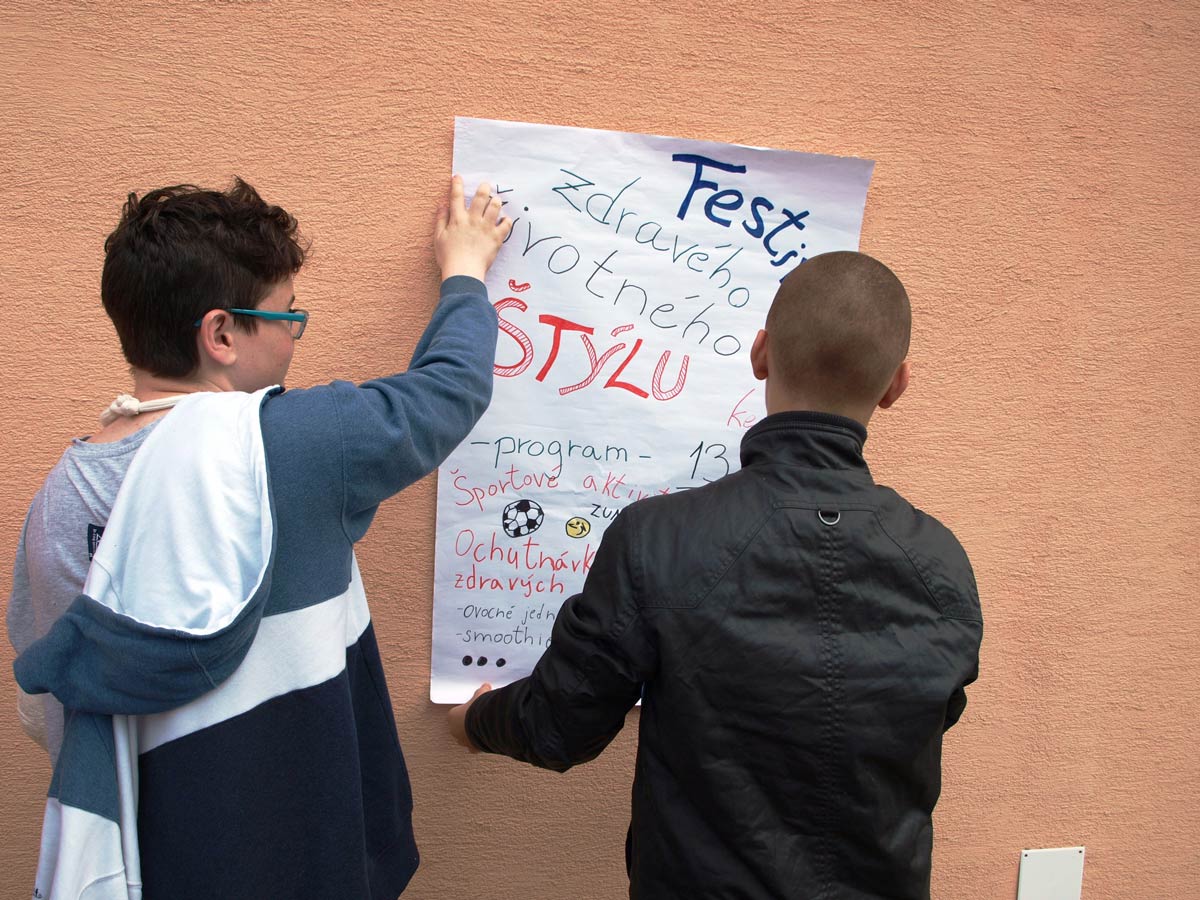 Festi
zdravého
životného
ŠTÝLU
ke
- program -
13
Športové aktivi
ZUM
Ochutnávk
zdravých
-ovocné jedn
-smoothie
•••